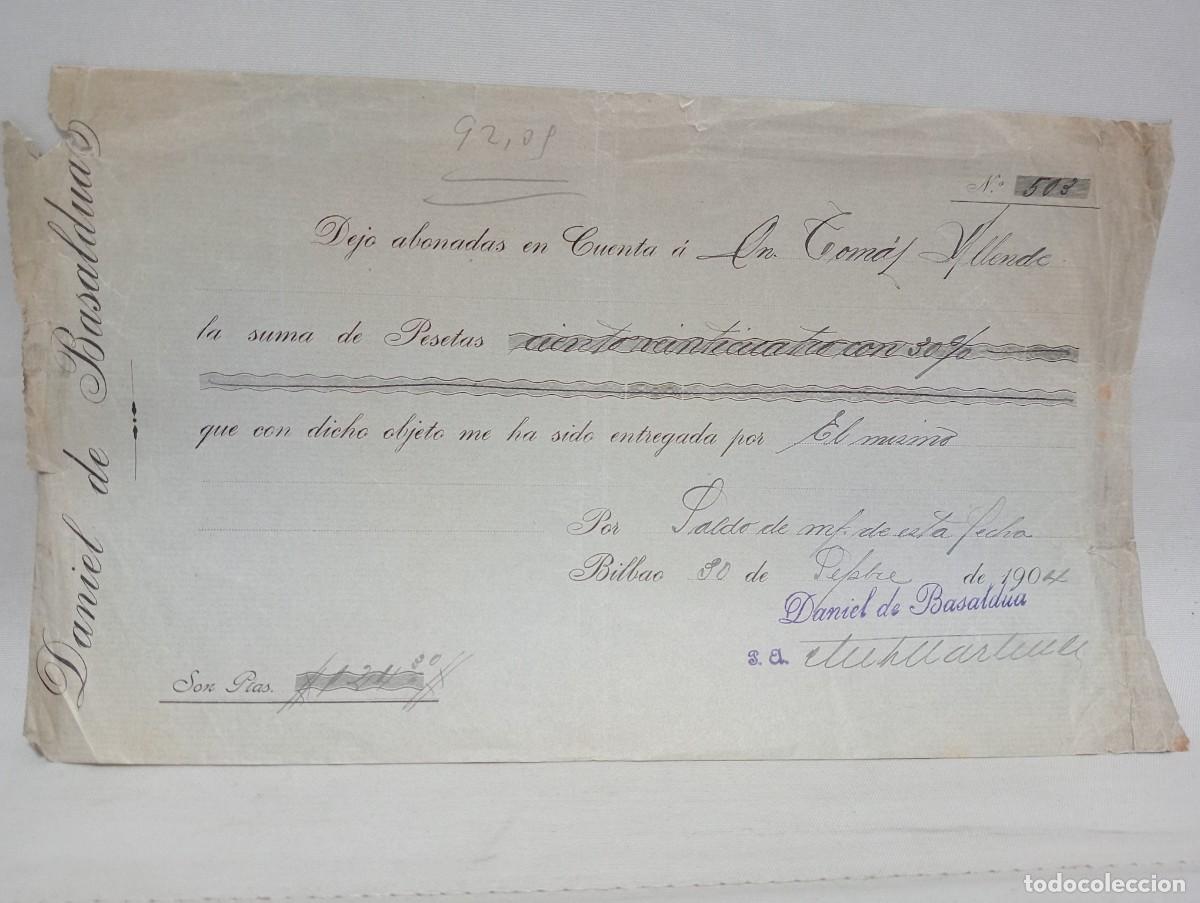 Daniel de Basaldua
92,09
N.º 503
Dejo abonadas en Cuenta á Dn. Tomás Allende
la suma de Pesetas ciento veinticuatro con 30 %
que con dicho objeto me ha sido entregada por El mismo
Por Saldo de mf. de esta fecha
Bilbao 30 de Sepbre de 1904
Daniel de Basaldúa
P. A.
Son Ptas. // 124 30 //
todocoleccion